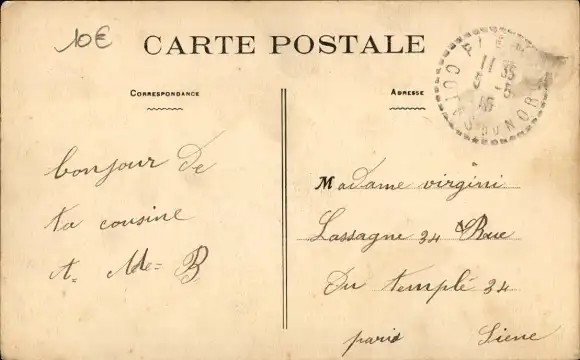 10€
CARTE POSTALE
CORRESPONDANCE
ADRESSE
11 35
5-3
16
COTES DU NORD
bonjour de
ta cousine
A= Me= B
Madame virgini
Lassagne 34 Rue
Du templé 34
paris